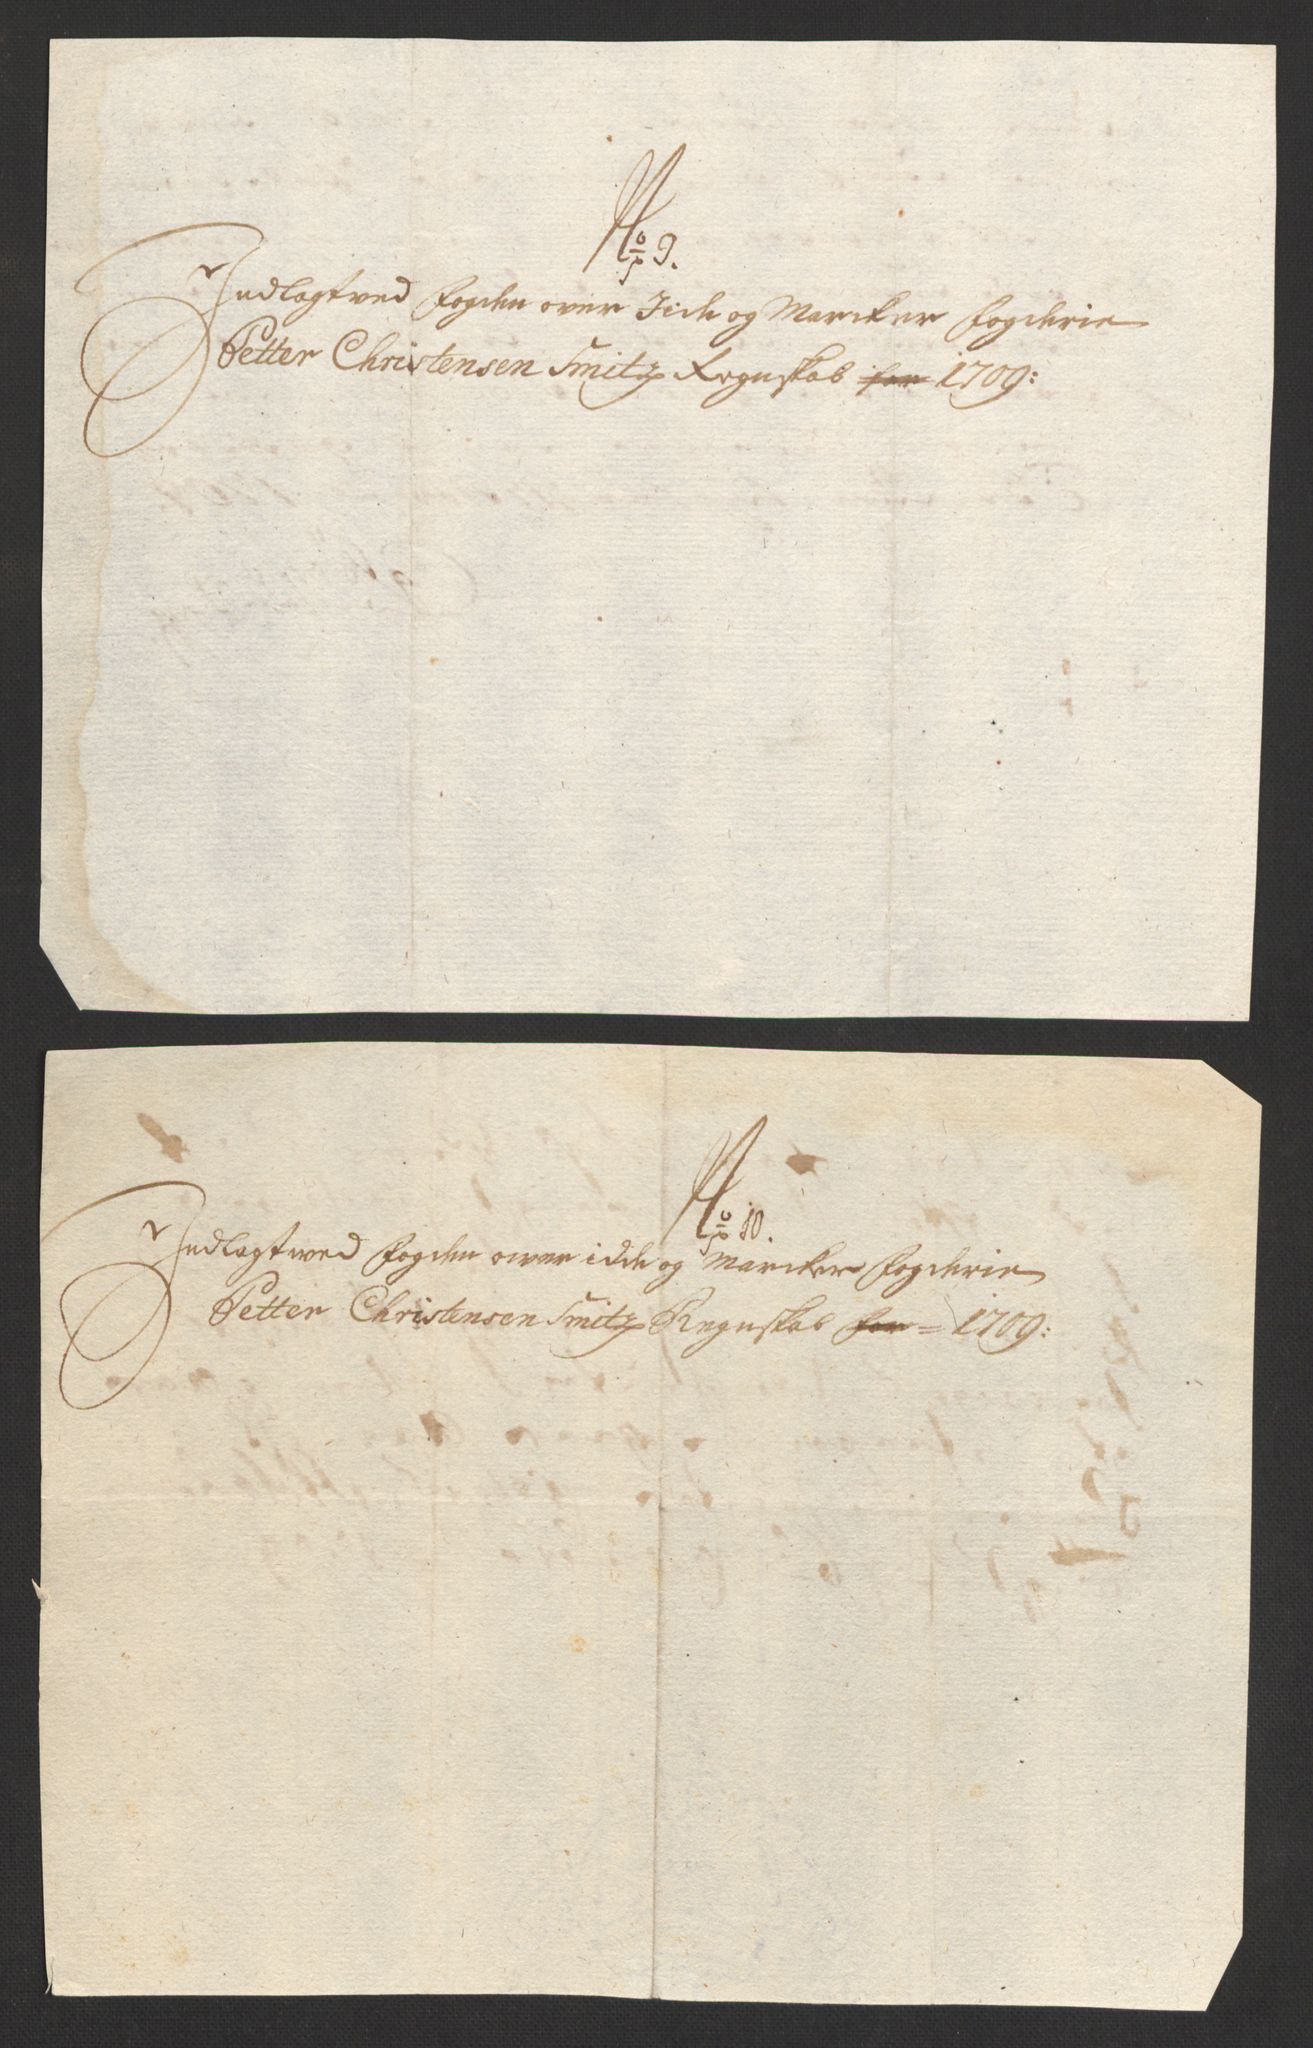 No 9.
Indlagt ved Fogden over Idde og Marcker Fogderie
Petter Christensen Smitz Regnskab for 1709:
No 10.
Indlagt ved Fogden over idde og Marcker Fogderie
Petter Christensen Smitz Regnskab for = 1709: